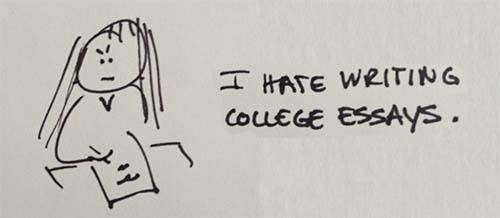 I HATE WRITING
COLLEGE ESSAYS.